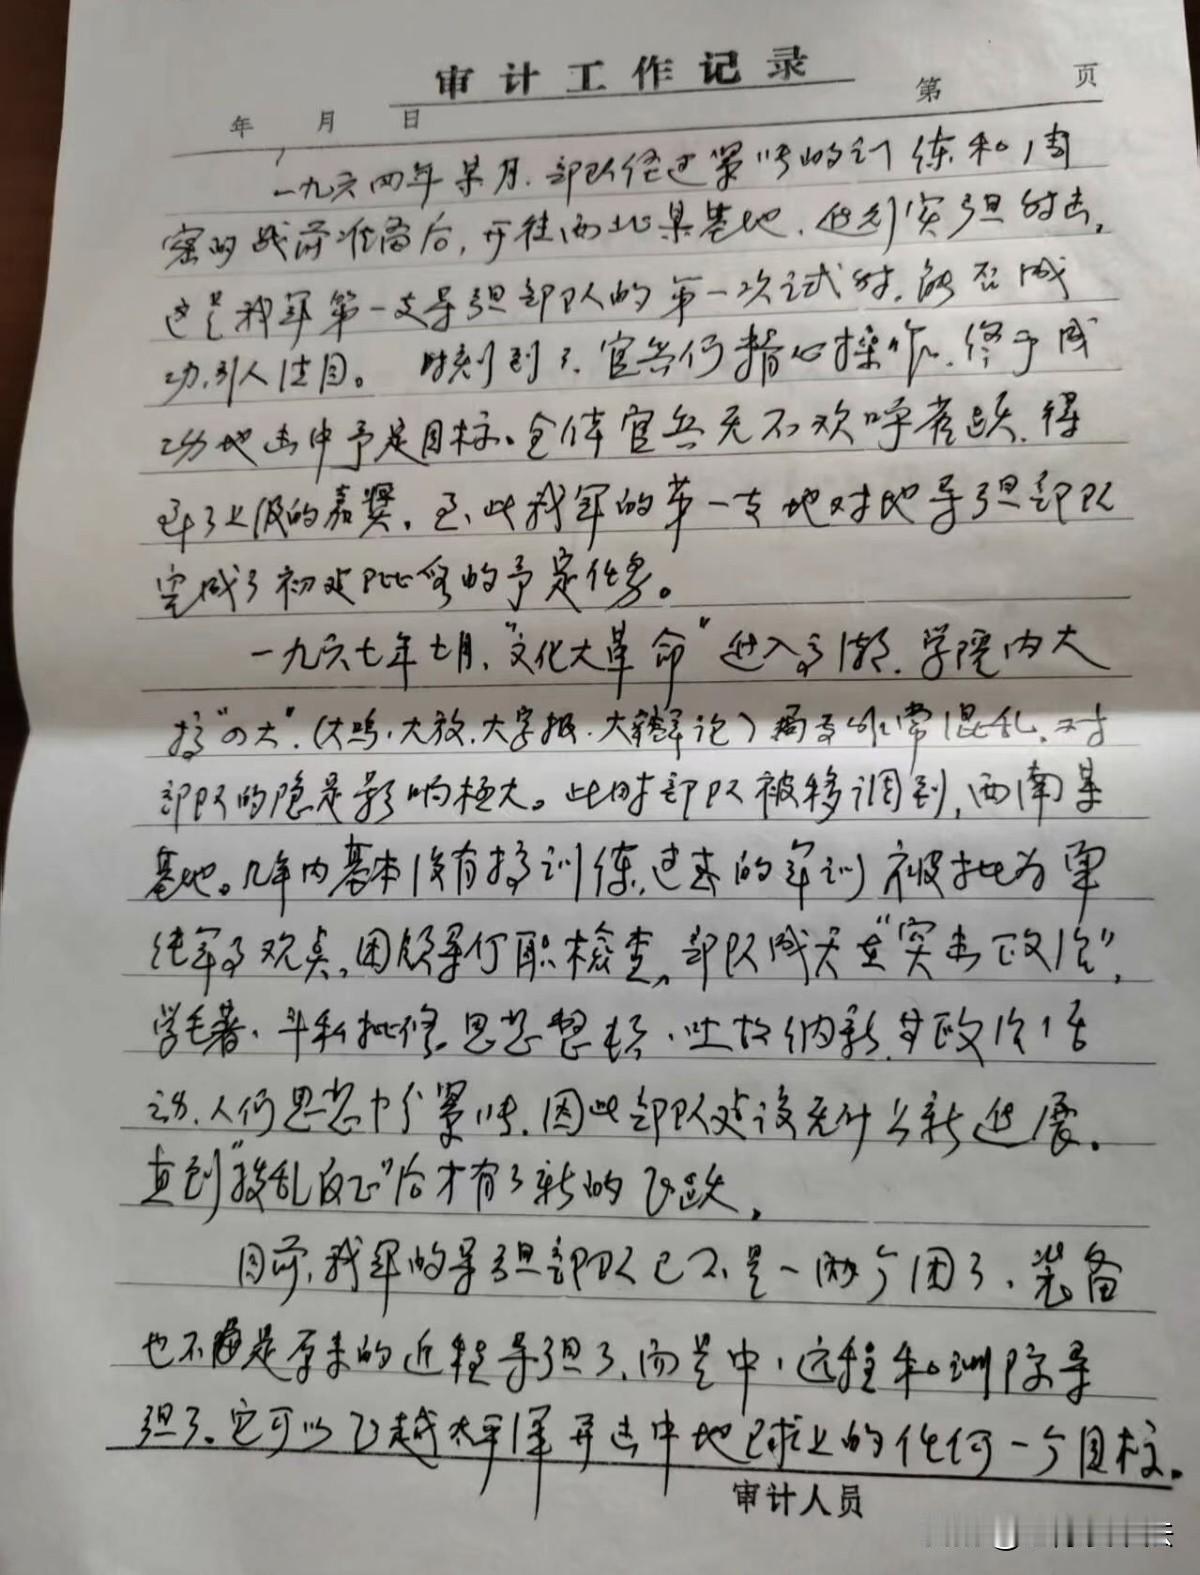 审计工作记录
年 月 日 第 页
一九六四年某月.部队经过紧张的训练和周
密的战前准备后,开往西北某基地.进行实弹射击,
这是我军第一支导弹部队的第一次试射.能否成
功,引人注目。 时刻到了.官兵们精心操作.终于成
功地击中予定目标。全体官兵无不欢呼雀跃.得
到了上级的嘉奖。至此我军的第一支地对地导弹部队
完成了初建阶段的予定任务。
一九六七年七月,"文化大革命"进入高潮.学院内大
搞"四大".(大鸣.大放.大字报.大辩论)搞得非常混乱.对
部队的稳定影响极大。此时部队被移调到,西南某
基地。几年内基本没有搞训练,过去的军训被批为单
纯军事观点,团领导停职检查,部队成天在"突出政治",
学毛著.斗私批修.思想整顿.吐故纳新等政治活
动.人们思想十分紧张.因此部队建设无什么新进展.
直到"拨乱反正"后才有了新的飞跃.
目前,我军的导弹部队已不是一两个团了、装备
也不再是原来的近程导弹了.而是中,远程和洲际导
弹了。它可以飞越太平洋并击中地球上的任何一个目标.
审计人员